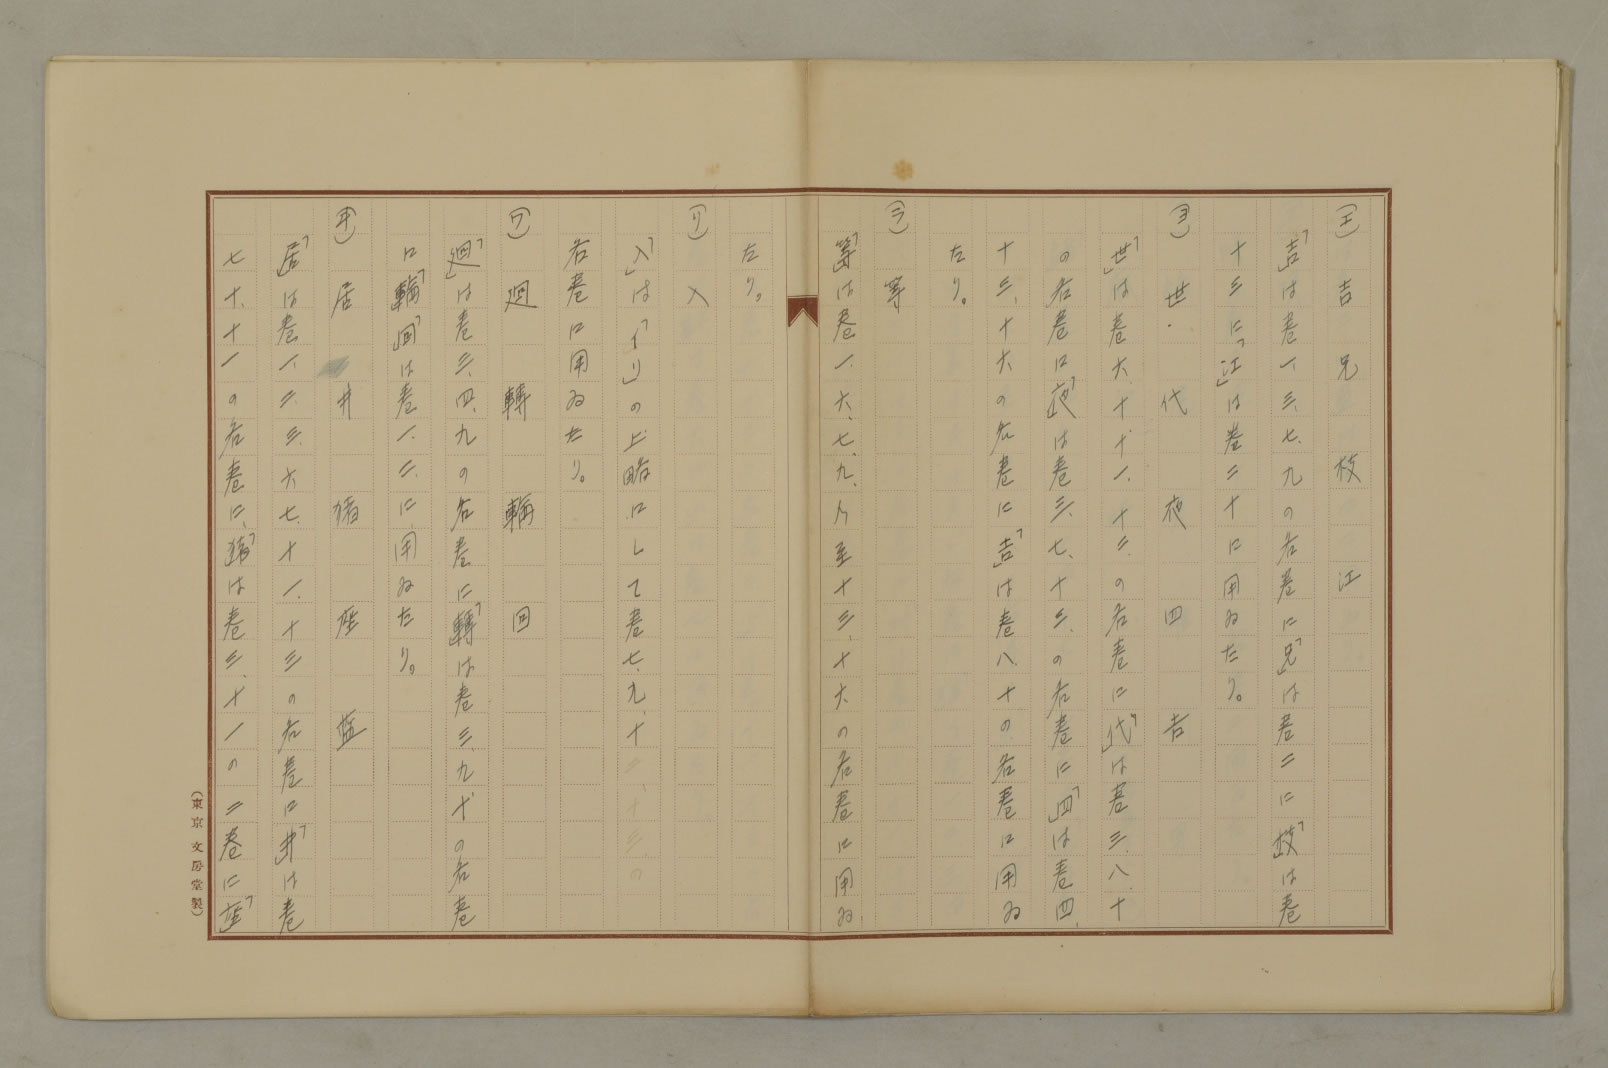 (エ) 吉 兄 枝 江
「吉」は巻一、三、七、九の各巻に「兄」は巻二に「枝」は巻
十三に「江」は巻二十に用ゐたり。
(ヨ) 世・代 夜 四 吉
「世」は巻六、十、十一、十二、の各巻に「代」は巻三、八、十
の各巻に「夜」は巻三、七、十三、の各巻に「四」は巻四、
十三、十六の各巻に「吉」は巻八、十の各巻に用ゐ
たり。
(ラ) 等
「等」は巻一、六、七、九、乃至十三、十六の各巻に用ゐ
たり。
(リ) 入
「入」は「イリ」の上略にして巻七、九、十二、十三、の
各巻に用ゐたり。
(ワ) 廻 轉 輪 回
「廻」は巻三、四、九の各巻に「轉」は巻三、九、十の各巻
に「輪」「回」は巻一、二、に用ゐたり。
(ヰ) 居 井 猪 座 藍
「居」は巻一、二、三、六、七、十一、十三の各巻に「井」は巻
七、十、十一の各巻に、「猪」は巻三、十一の二巻に「座」
(東京 文房堂製)